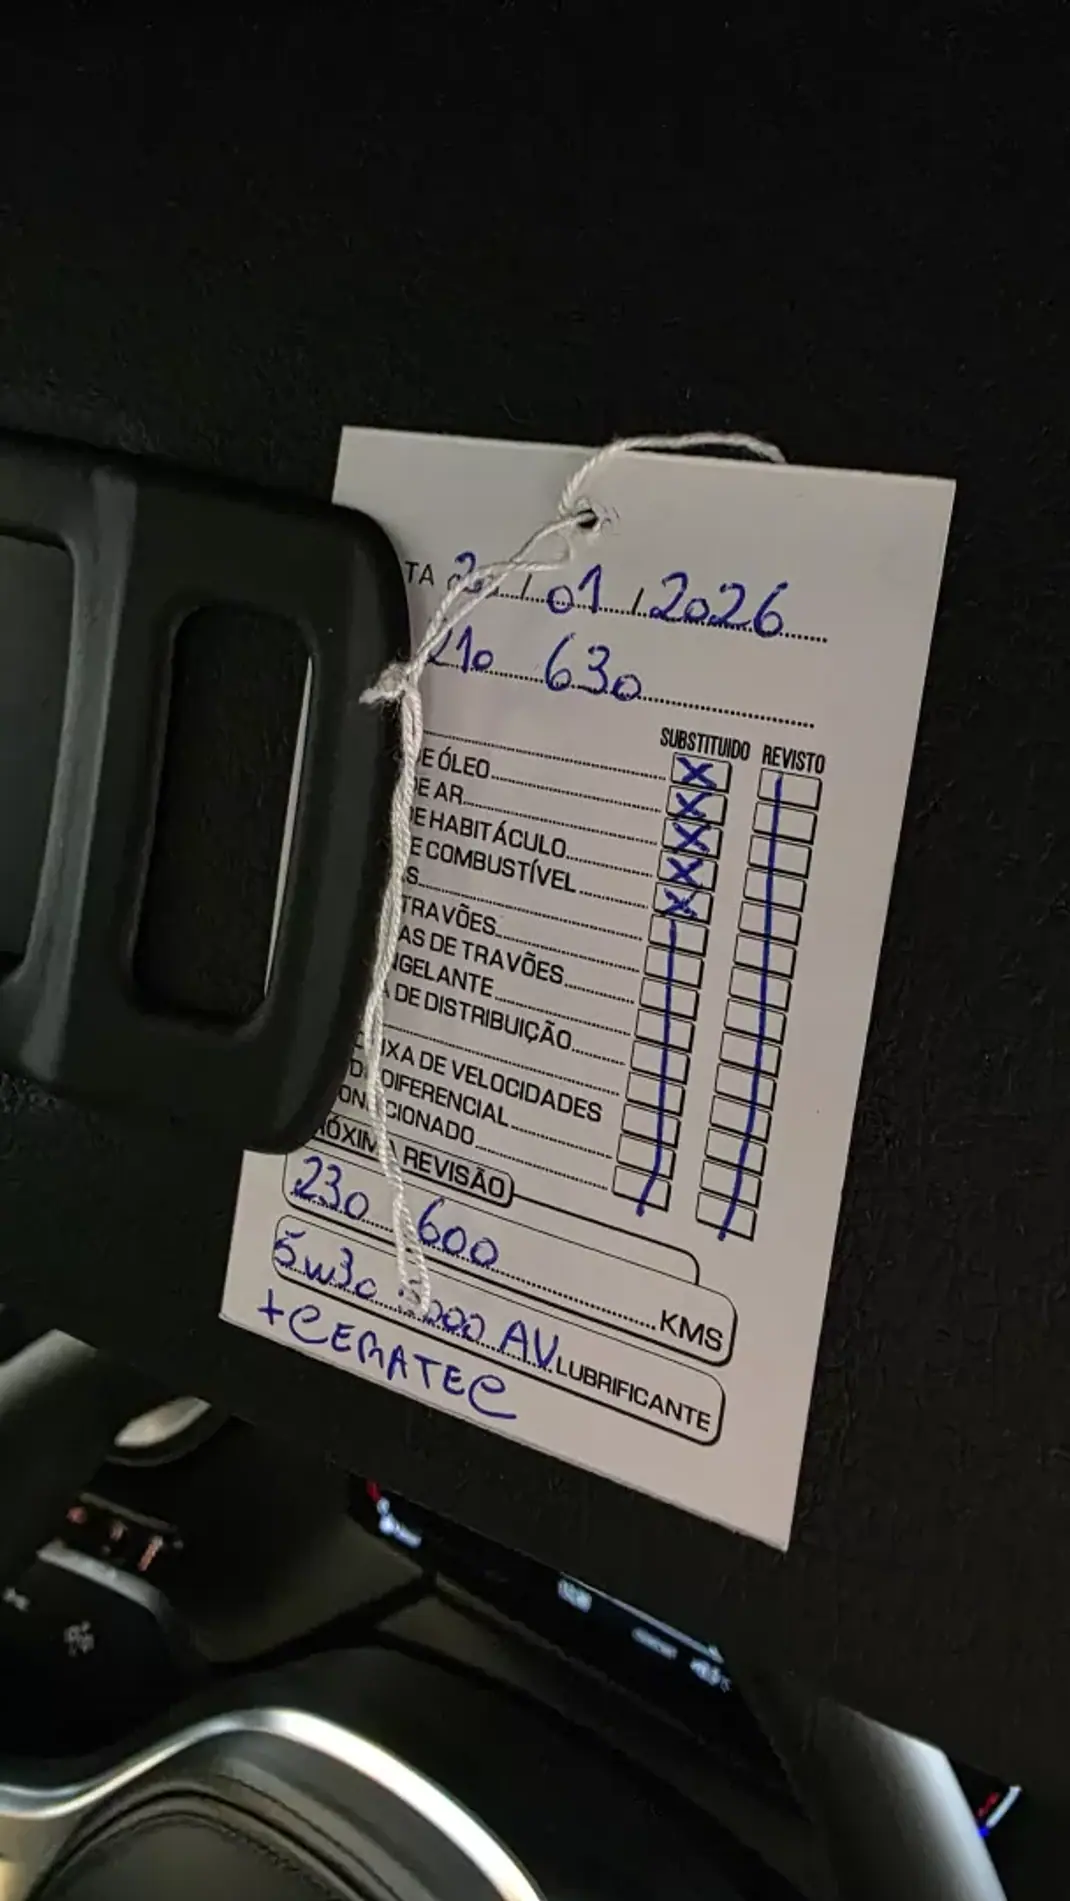 TA 20 / 01 / 2026
210 630
SUBSTITUIDO REVISTO
DE ÓLEO
DE AR
DE HABITÁCULO
DE COMBUSTÍVEL
S
TRAVÕES
AS DE TRAVÕES
NGELANTE
DE DISTRIBUIÇÃO
IXA DE VELOCIDADES
DIFERENCIAL
CIONADO
RÓXIMA REVISÃO
230 600 KMS
5W30 AV LUBRIFICANTE
+CERATEC